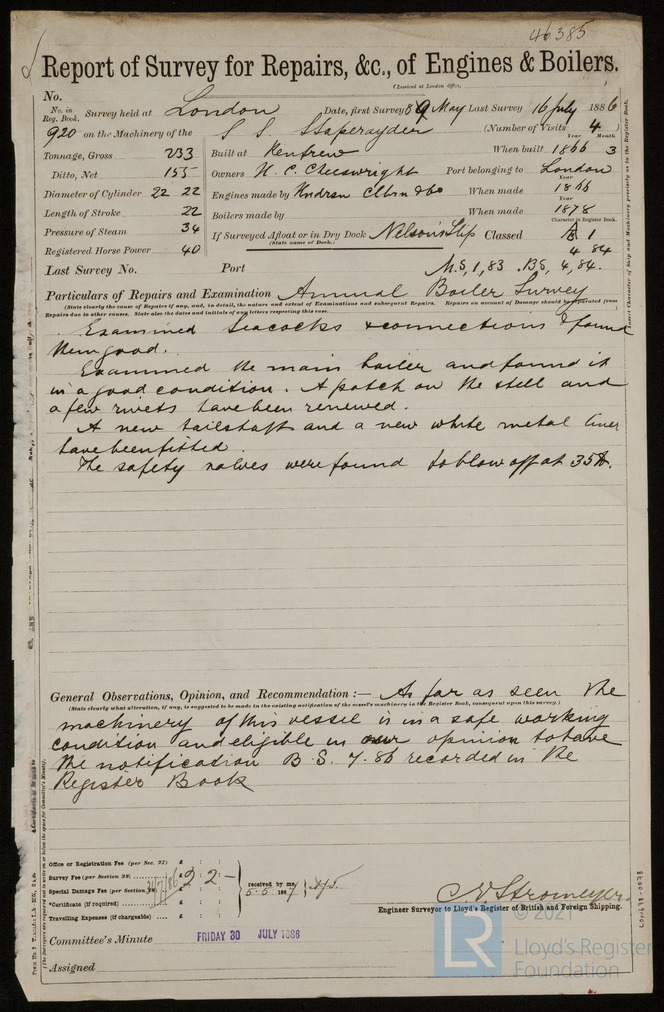 46385
Report of Survey for Repairs, &c., of Engines & Boilers.
(Received at London Office,
No.
No. in Reg. Book. Survey held at London Date, first Survey 8 9 May Last Survey 16 July 1886
920 on the Machinery of the S S. (Number of Visits 4
Tonnage, Gross 233 Built at Renfrew When built Year 1866 Month 3
Ditto, Net 155 Owners H. C. Cheeswright Port belonging to London
Diameter of Cylinder 22 22 Engines made by When made Year 1866
Length of Stroke 22 Boilers made by When made Year 1878
Pressure of Steam 34 If Surveyed Afloat or in Dry Dock Nelson's Slip Classed 1
(State name of Dock.) Character in Register Book.
Registered Horse Power 40 4 84
Last Survey No. Port M.S. 1,83 . BS, 4,84.
Particulars of Repairs and Examination Annual Boiler Survey
(State clearly the cause of Repairs if any, and, in detail, the nature and extent of Examinations and subsequent Repairs. Repairs on account of Damage should be separated from
Repairs due to other causes. State also the dates and initials of any letters respecting this case.
Examined Seacocks & connections & found
them good.
Examined the main boiler and found it
in a good condition. A patch on the shell and
a few rivets have been renewed.
A new tailshaft and a new white metal liner
have been fitted.
The safety valves were found to blow off at 35 lb.
General Observations, Opinion, and Recommendation :— As far as seen the
(State clearly what alteration, if any, is suggested to be made in the existing notification of the vessel's machinery in the Register Book, consequent upon this survey.)
machinery of this vessel is in a safe working
condition and eligible in our opinion to have
the notification B.S. 7.86 recorded in the
Register Book
Office or Registration Fee (per Sec. 27) £ : :
Survey Fee (per Section 28) £ 2 : 2 : -
Special Damage Fee (per Section 28) £ : :
*Certificate (if required) £ : :
Travelling Expenses (if chargeable) £ : :
received by me,
5.5 1887
C. E. Stromeyer.
Engineer Surveyor to Lloyd's Register of British and Foreign Shipping.
Committee's Minute FRIDAY 30 JULY 1886
Assigned
© 2021
LR
Lloyd's Register
Foundation